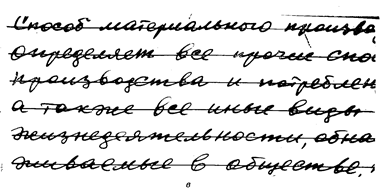 Способ материального произво
определяет все прочие спо
производства и потреблен
а также все иные виды
жизнедеятельности, обна
живаемые в обществе.
в